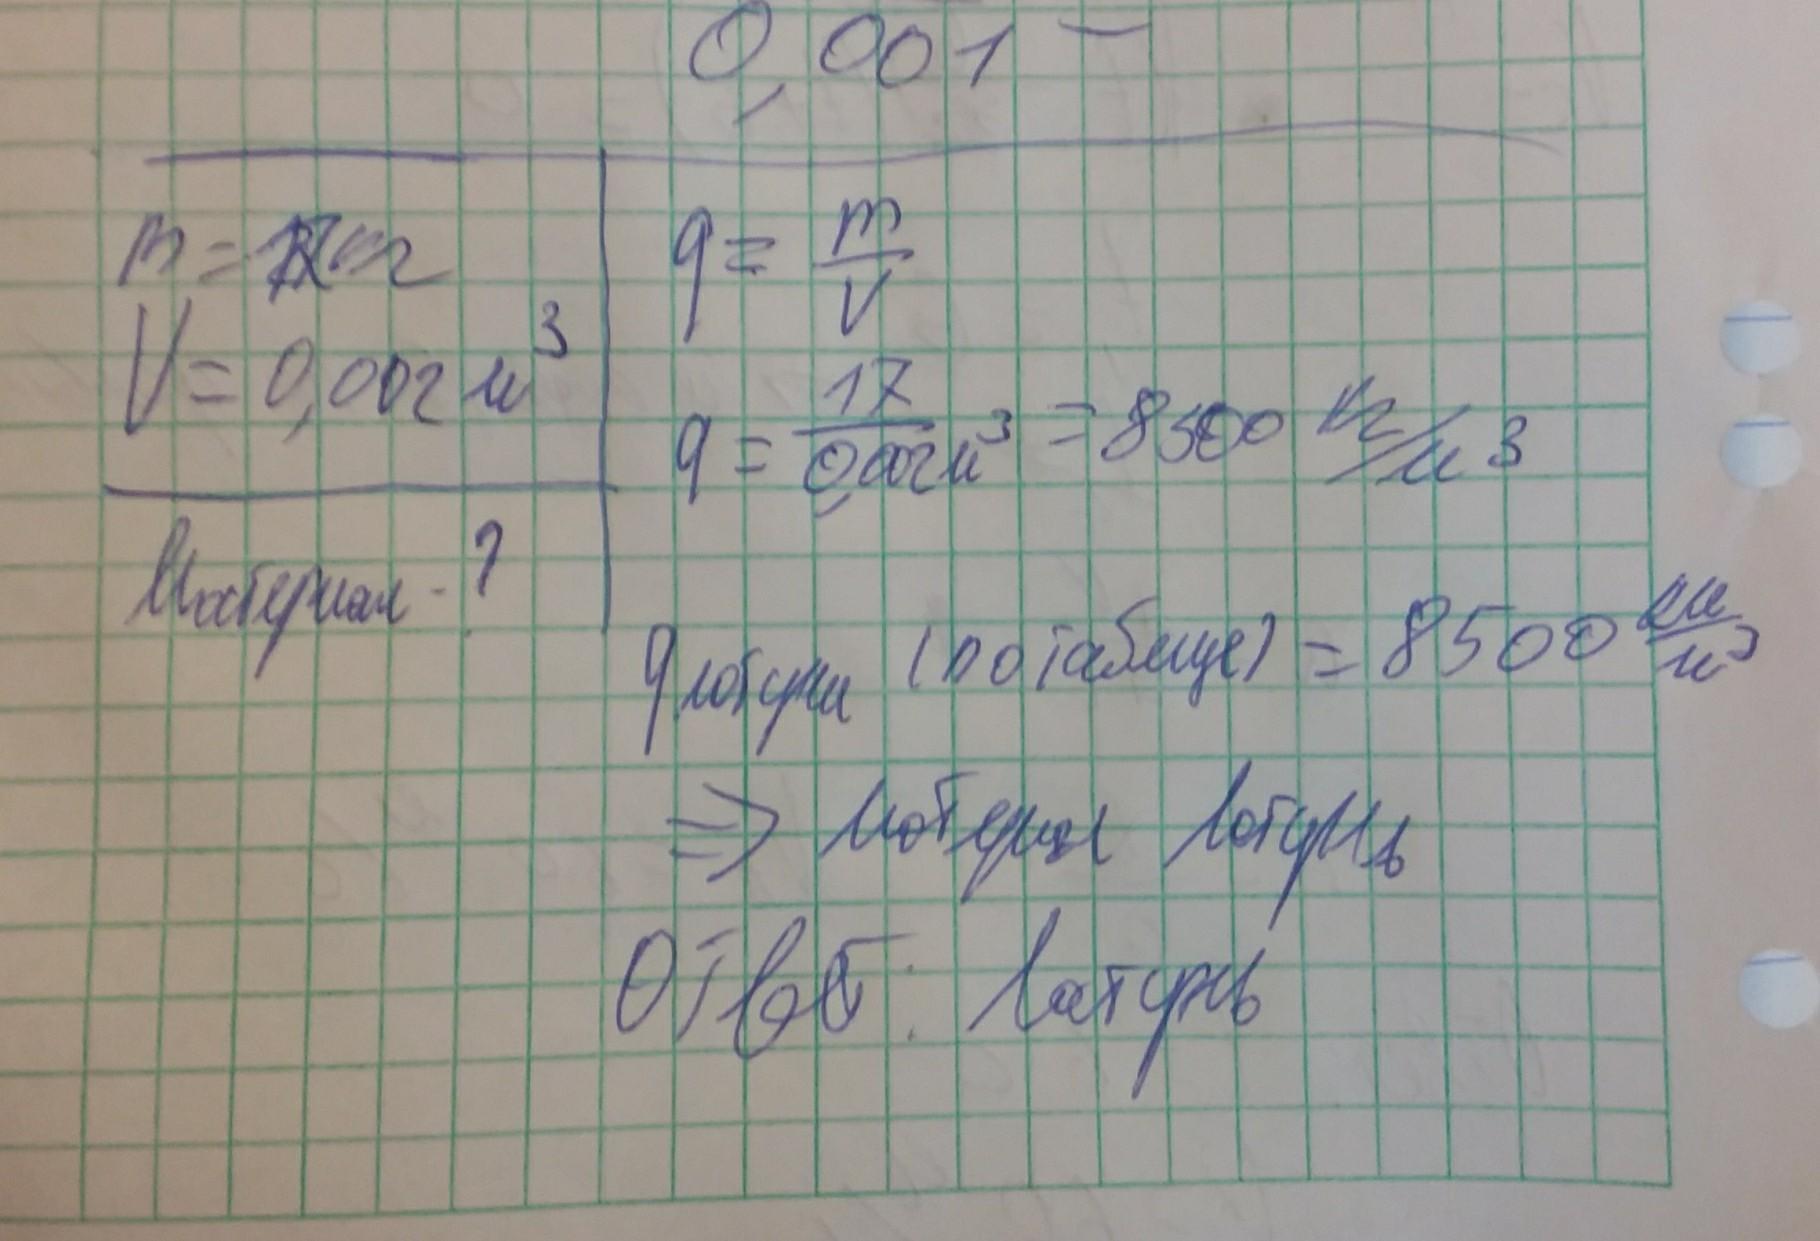 0,001
m = 17 кг
V = 0,002 м³
Материал - ?
q = m/V
q = 17/0,002 м³ = 8500 кг/м³
q латуни (по таблице) = 8500
=> материал латунь
Ответ: латунь